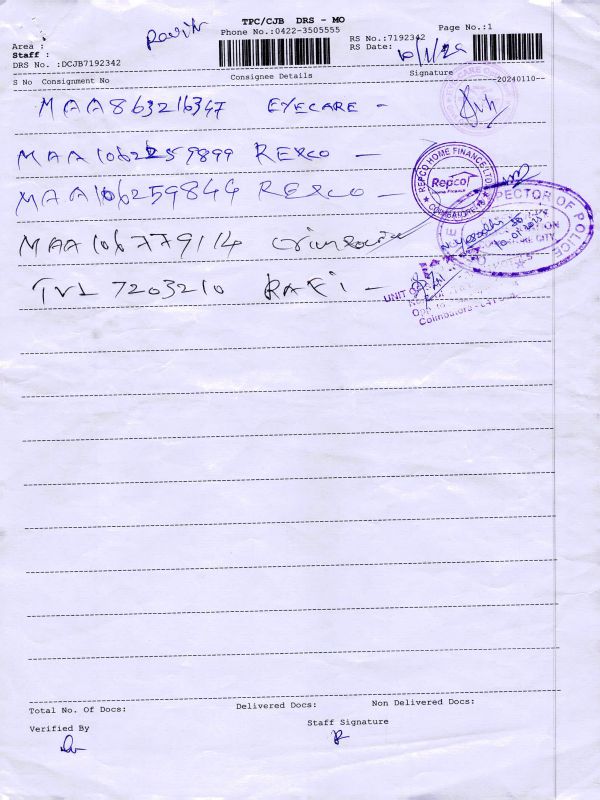 TPC/CJB DRS - MO
Phone No.:0422-3505555
Page No.:1
Area :
RS No.:7192342
Staff :
RS Date: 10/1/24
DRS No. :DCJB7192342
S No Consignment No Consignee Details Signature
20240110
MAA863216347 EYECARE -
MAA1062259899 REXCO -
MAA106259844 REXCO -
REPCO HOME FINANCE LTD
Repco
Home Finance
COIMBATORE
INSPECTOR OF POLICE
MAA106779114
TVL 7203210 RAKI -
UNIT
Coimbatore
Total No. Of Docs: Delivered Docs: Non Delivered Docs:
Verified By Staff Signature